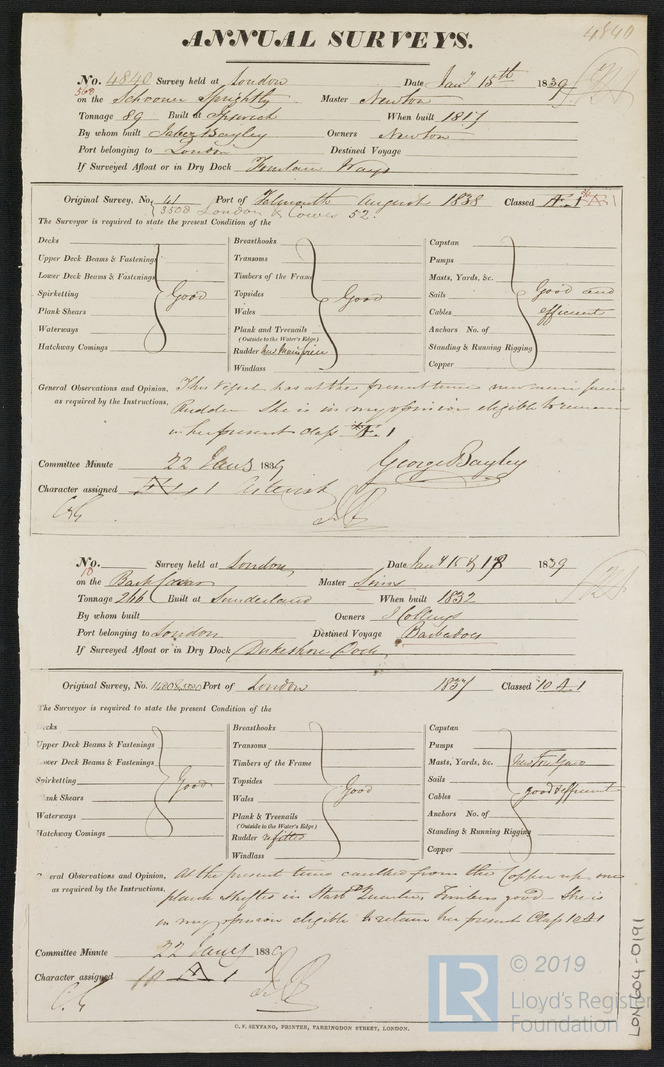 4840
ANNUAL SURVEYS.
No. 4840 Survey held at London Date Jany 15th 1839
568
on the Schooner Sprightly Master Newton
Tonnage 89 Built at Ipswich When built 1817
By whom built Jabez Bayley Owners Newton
Port belonging to London Destined Voyage
If Surveyed Afloat or in Dry Dock Fountain Ways
Original Survey, No. 41 Port of Falmouth August 1838 Classed Æ 1
3508 London & Cowes 52.
The Surveyor is required to state the present Condition of the
Decks
Upper Deck Beams & Fastenings
Lower Deck Beams & Fastenings
Spirketting Good
Plank Shears
Waterways
Hatchway Comings
Breasthooks
Transoms
Timbers of the Frame
Topsides Good
Wales
Plank and Treenails
(Outside to the Water's Edge)
Rudder new main piece
Windlass
Capstan
Pumps
Masts, Yards, &c.
Sails Good and
Cables efficient
Anchors No. of
Standing & Running Rigging
Copper
General Observations and Opinion, This Vessel has at the present time new main piece
as required by the Instructions. Rudder She is in my opinion eligible to remain
in her present Class Æ 1
Committee Minute 22 Jany 1839 George Bayley
Character assigned Æ 1
No. Survey held at London, Date Jany 15 & 18 1839
10
on the Bark Master
Tonnage 266 Built at Sunderland When built 1832
By whom built Owners
Port belonging to London Destined Voyage Barbadoes
If Surveyed Afloat or in Dry Dock Dukeshore Dock
Original Survey, No. Port of London 1837 Classed 10 A 1
The Surveyor is required to state the present Condition of the
Decks
Upper Deck Beams & Fastenings
Lower Deck Beams & Fastenings
Spirketting Good
Plank Shears
Waterways
Hatchway Comings
Breasthooks
Transoms
Timbers of the Frame
Topsides Good
Wales
Plank & Treenails
(Outside to the Water's Edge)
Rudder refitted
Windlass
Capstan
Pumps
Masts, Yards, &c. New Fore Yard
Sails
Cables good & efficient
Anchors No. of
Standing & Running Rigging
Copper
General Observations and Opinion, At the present time caulked from the Copper up, one
as required by the Instructions. plank shifted in Starbd Quarter, Timbers good - She is
in my opinion eligible to retain her present Class 10 A 1
Committee Minute 22 Jany 1839
Character assigned 10 A 1
C. F. SEYFANG, PRINTER, FARRINGDON STREET, LONDON.
LON604-0191
LR
© 2019
Lloyd's Register
Foundation